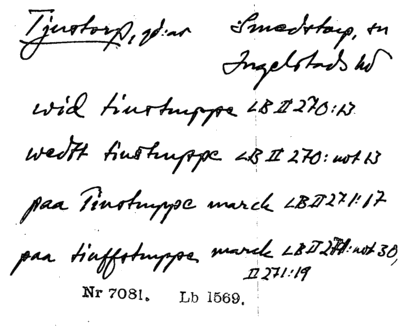 Tjustorp, gd:ar Smedstorp, sn
Ingelstads hd
wid tiustruppe LB II 270:13
wedtt tiustruppe LB II 270:not 13
paa Tiustruppe marck LB II 271:17
paa tiuffstruppe marck LB II 271:not 30,
II 271:19
Nr 7081. Lb 1569.